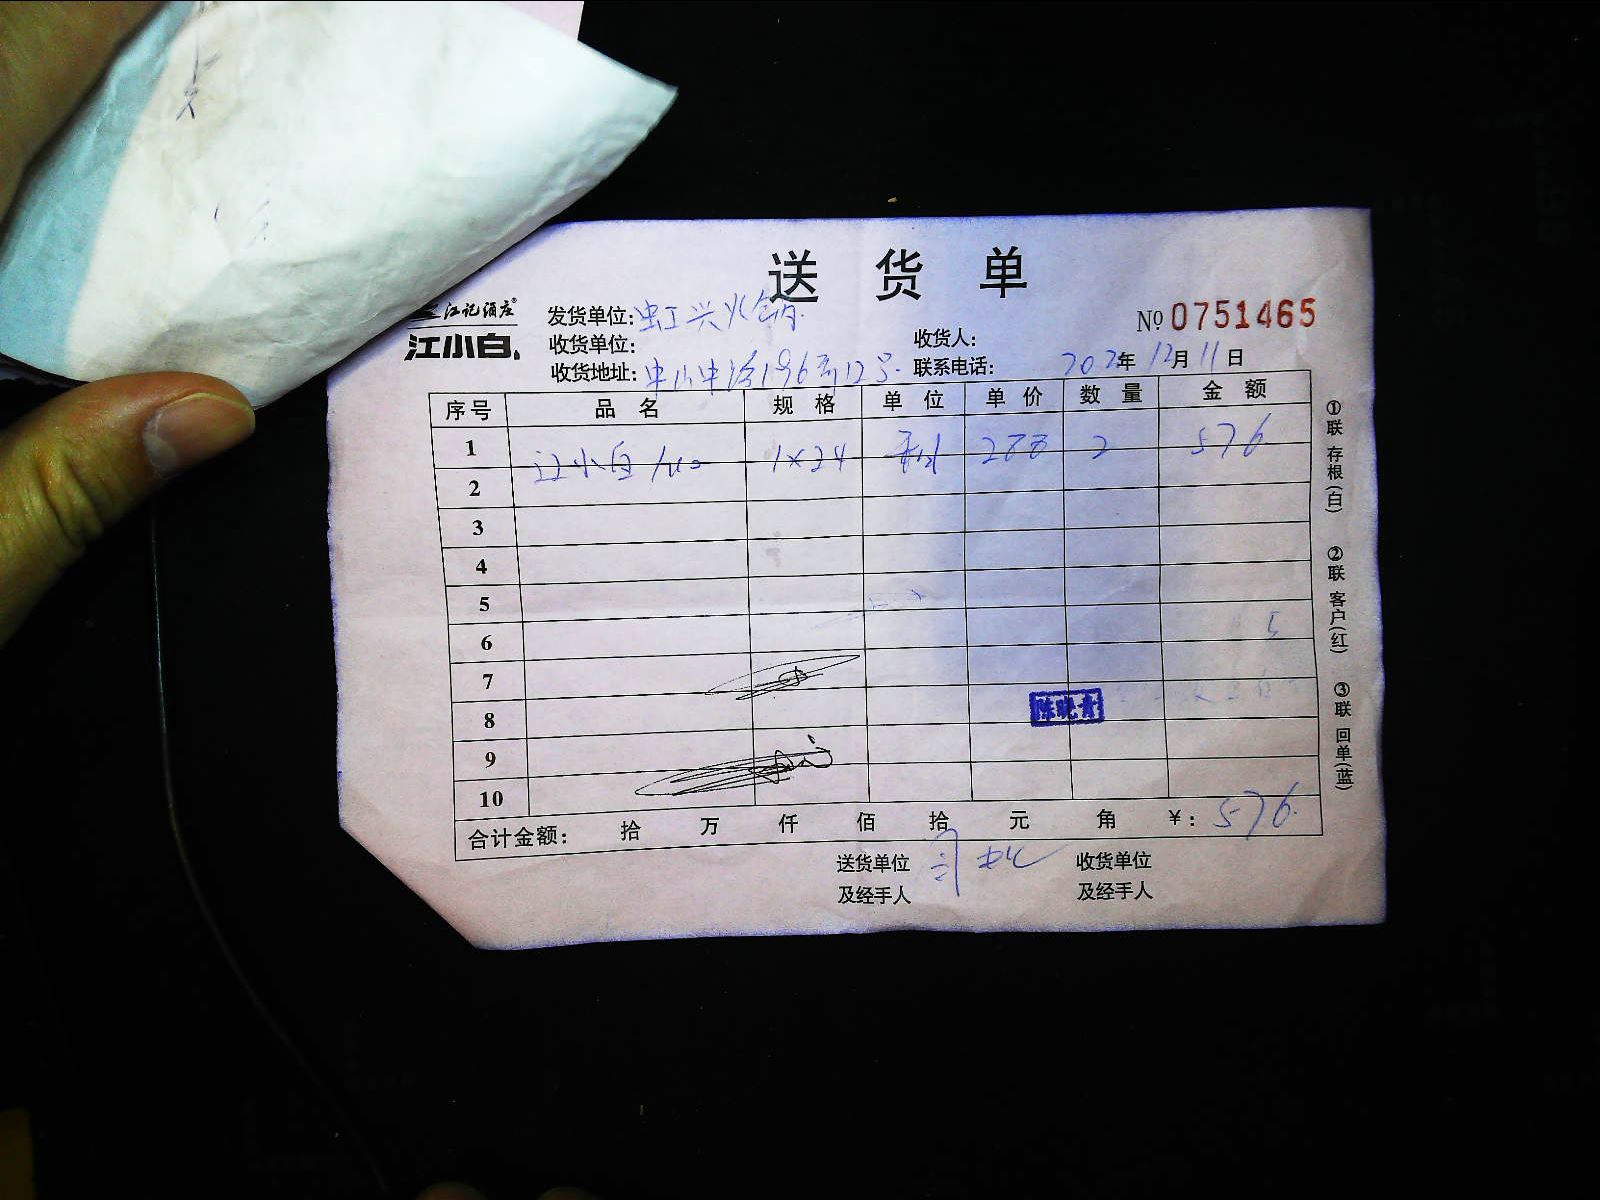 送 货 单
江记酒庄®
江小白
发货单位: 虹兴火锅
№ 0751465
收货单位:
收货人:
收货地址: 中山中路196号12号
联系电话:
202 年 12 月 11 日
序号 品 名 规 格 单 位 单 价 数 量 金 额
1 江小白 1×24 288 2 576
2
3
4
5
6
7
8
9
10
陈晓青
合计金额: 拾 万 仟 佰 拾 元 角 ¥: 576
送货单位 收货单位
及经手人 及经手人
①联 存根(白)
②联 客户(红)
③联 回单(蓝)